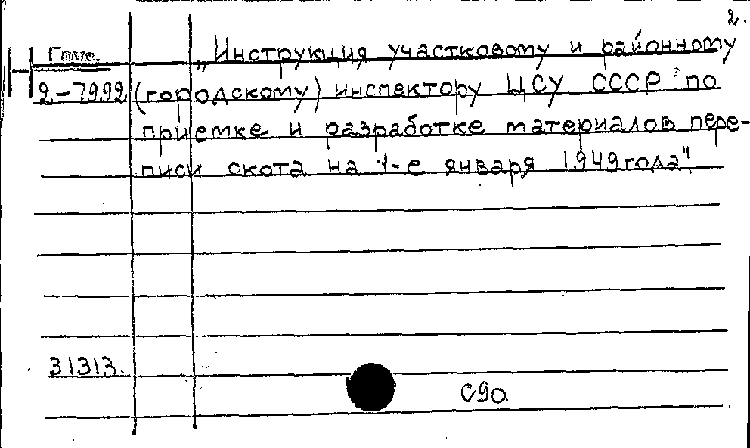 2.
„Инструкция участковому и районному
2-7992 (городскому) инспектору ЦСУ СССР по
приемке и разработке материалов пере-
писи скота на 1-е января 1949 года"
31313.
С90